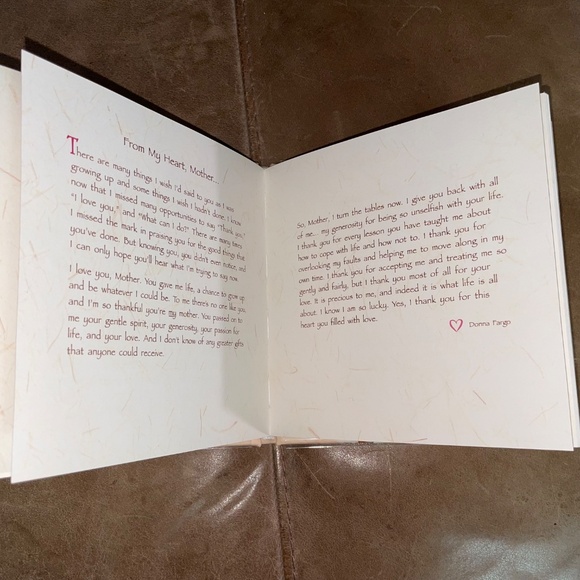 From My Heart, Mother...
There are many things I wish I'd said to you as I was
growing up and some things I wish I hadn't done. I know
now that I missed many opportunities to say "Thank you,"
"I love you," and "What can I do?" There are many times
I missed the mark in praising you for the good things that
you've done. But knowing you, you didn't even notice, and
I can only hope you'll hear what I'm trying to say now.
I love you, Mother. You gave me life, a chance to grow up
and be whatever I could be. To me there's no one like you
and I'm so thankful you're my mother. You passed on to
me your gentle spirit, your generosity, your passion for
life, and your love. And I don't know of any greater gifts
that anyone could receive.
So, Mother, I turn the tables now. I give you back with all
of me... my generosity for being so unselfish with your life.
I thank you for every lesson you have taught me about
how to cope with life and how not to. I thank you for
overlooking my faults and helping me to move along in my
own time. I thank you for accepting me and treating me so
gently and fairly, but I thank you most of all for your
love. It is precious to me, and indeed it is what life is all
about. I know I am so lucky. Yes, I thank you for this
heart you filled with love.
Donna Fargo